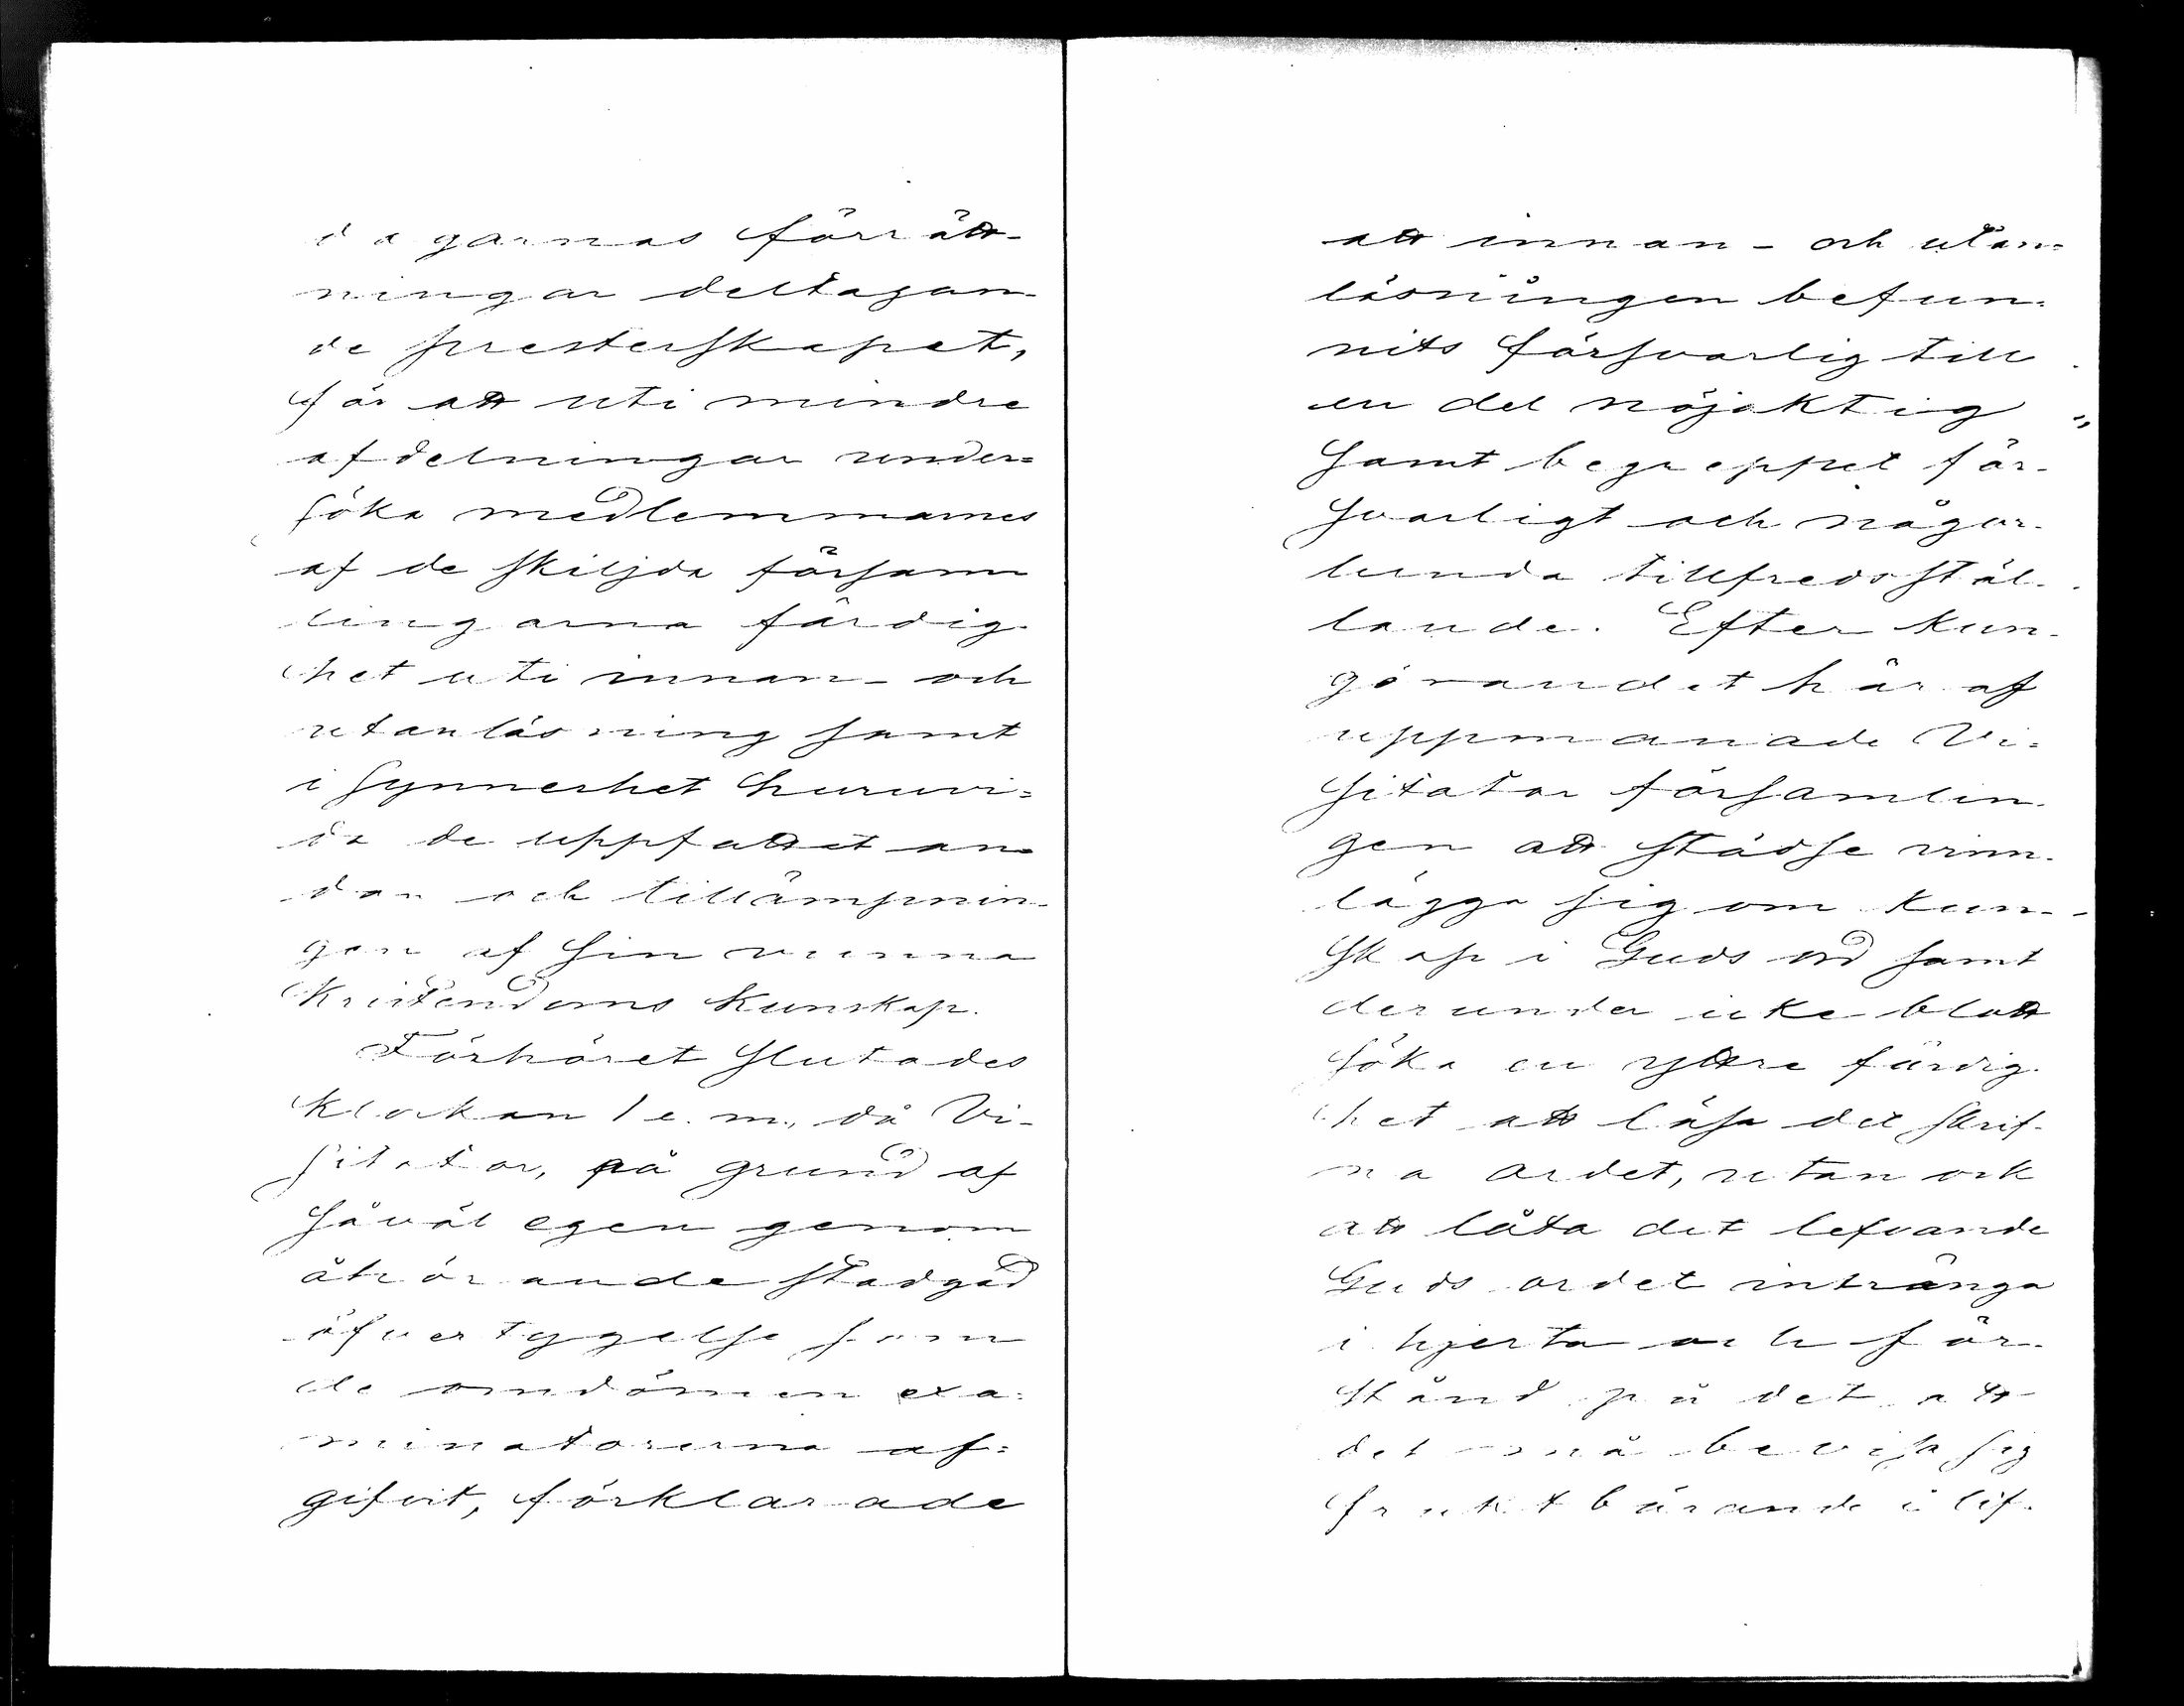 dagarnas förrätt-
ningar deltagan-
de presterskapet,
för att uti mindre
afdelningar under=
söka medlemmarnes
af de skiljda försam
lingarna färdig-
het uti innan- och
utanläsning samt
i synnerhet huruvi=
da de uppfattat an-
dan och tillämpnin-
gen af sin vunna
Kristendoms kunskap.
Förhöret slutades
klockan 1 e.m., då Vi-
sitator, på grund af
såväl egen genom
åhörande stadgad
öfvertygelse som
de omdömen exa=
minatorerna af=
gifvit, förklarade
att innan- och utan=
läsningen befun-
nits försvarlig till
en del nöjaktig
samt begreppet för-
svarligt och någor-
lunda tillfredsstäl-
lande. Efter kun-
görandet häraf
uppmanade Vi=
sitator församlin-
gen att städse vinn-
lägga sig om kun-
skap i Guds ord samt
derunder icke blott
söka en yttre färdig-
het att läsa det skrif-
na ordet, utan ock
att låta det lefvande
Guds ordet intränga
i hjerta och för-
stånd på det att
det må bevisa sig
fruktbärande i lif-